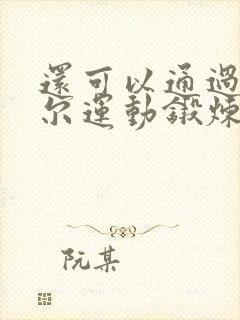 還可以通過
尔運動鍛煉
阮某